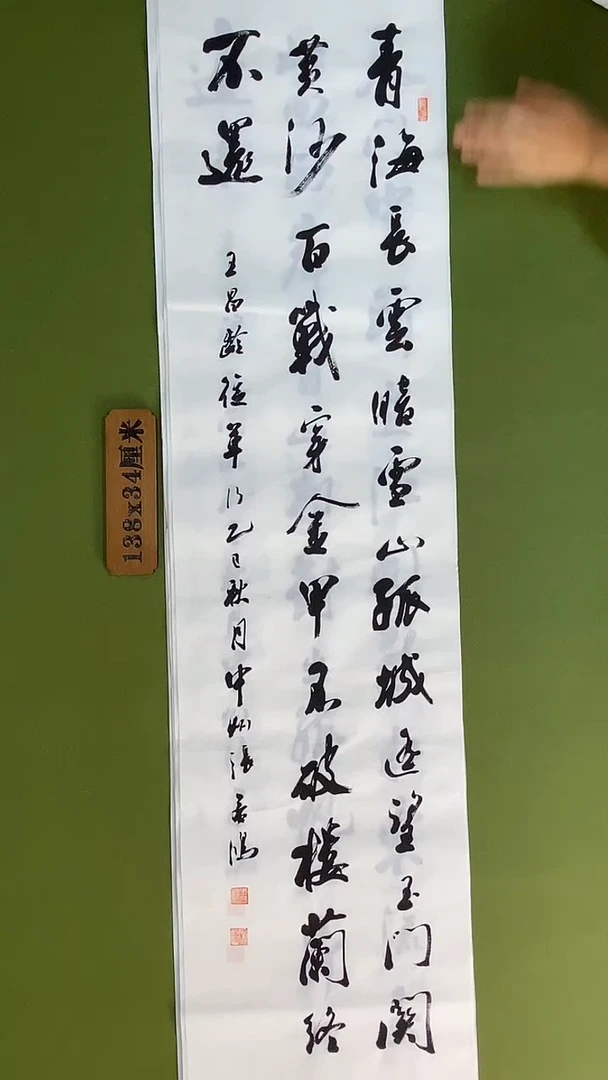 青海長雲暗雪山孤城遥望玉門關
黄沙百戰穿金甲不破樓蘭終
不還
王昌齡從軍行乙巳秋月中州張
138x34厘米